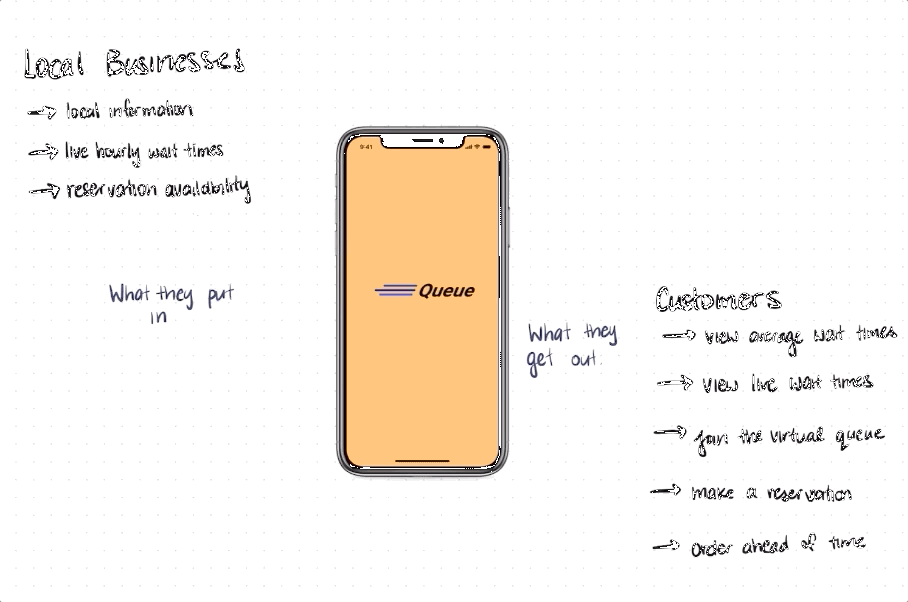 Local Businesses
local information
live hourly wait times
reservation availability
What they put
in
9:41
Queue
What they
get out.
Customers
view average wait times
view live wait times
join the virtual queue
make a reservation
order ahead of time